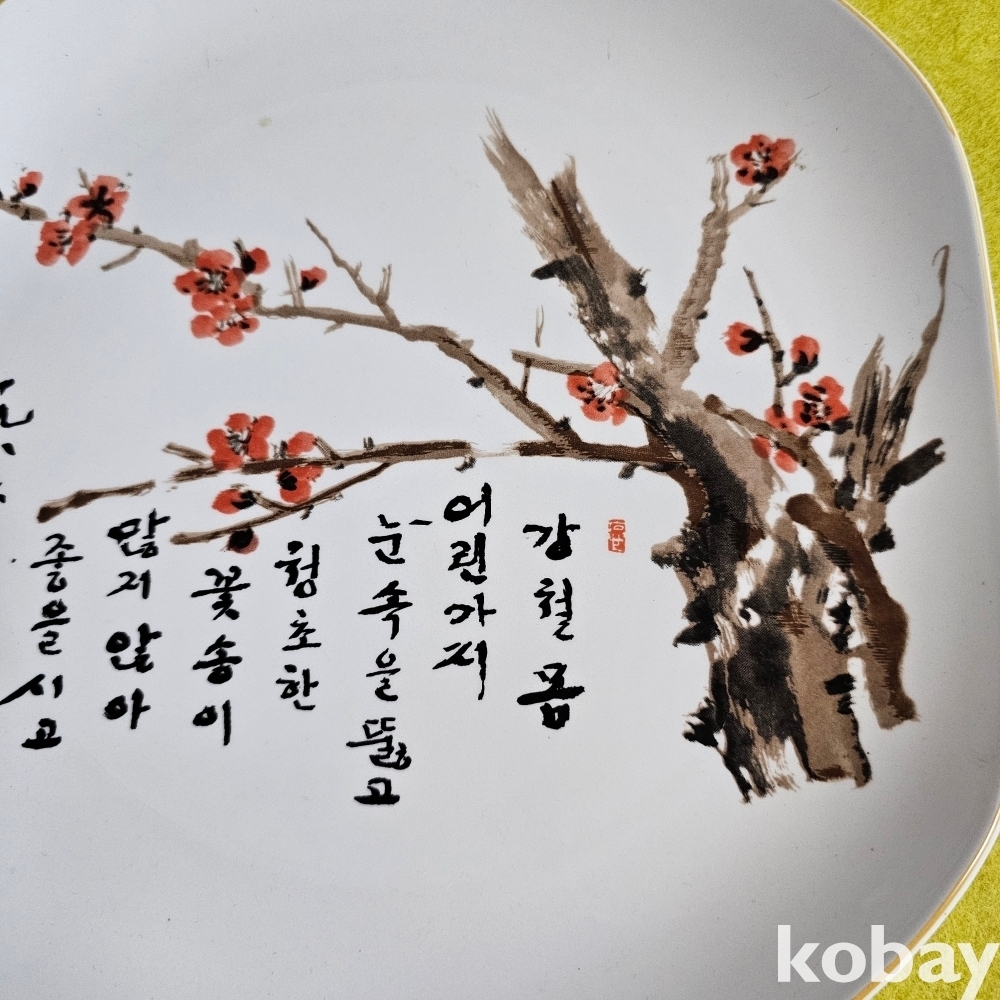 강철 몸
어린 가지
눈 속을 뚫고
청초한
꽃송이
많지 않아
좋을시고
kobay